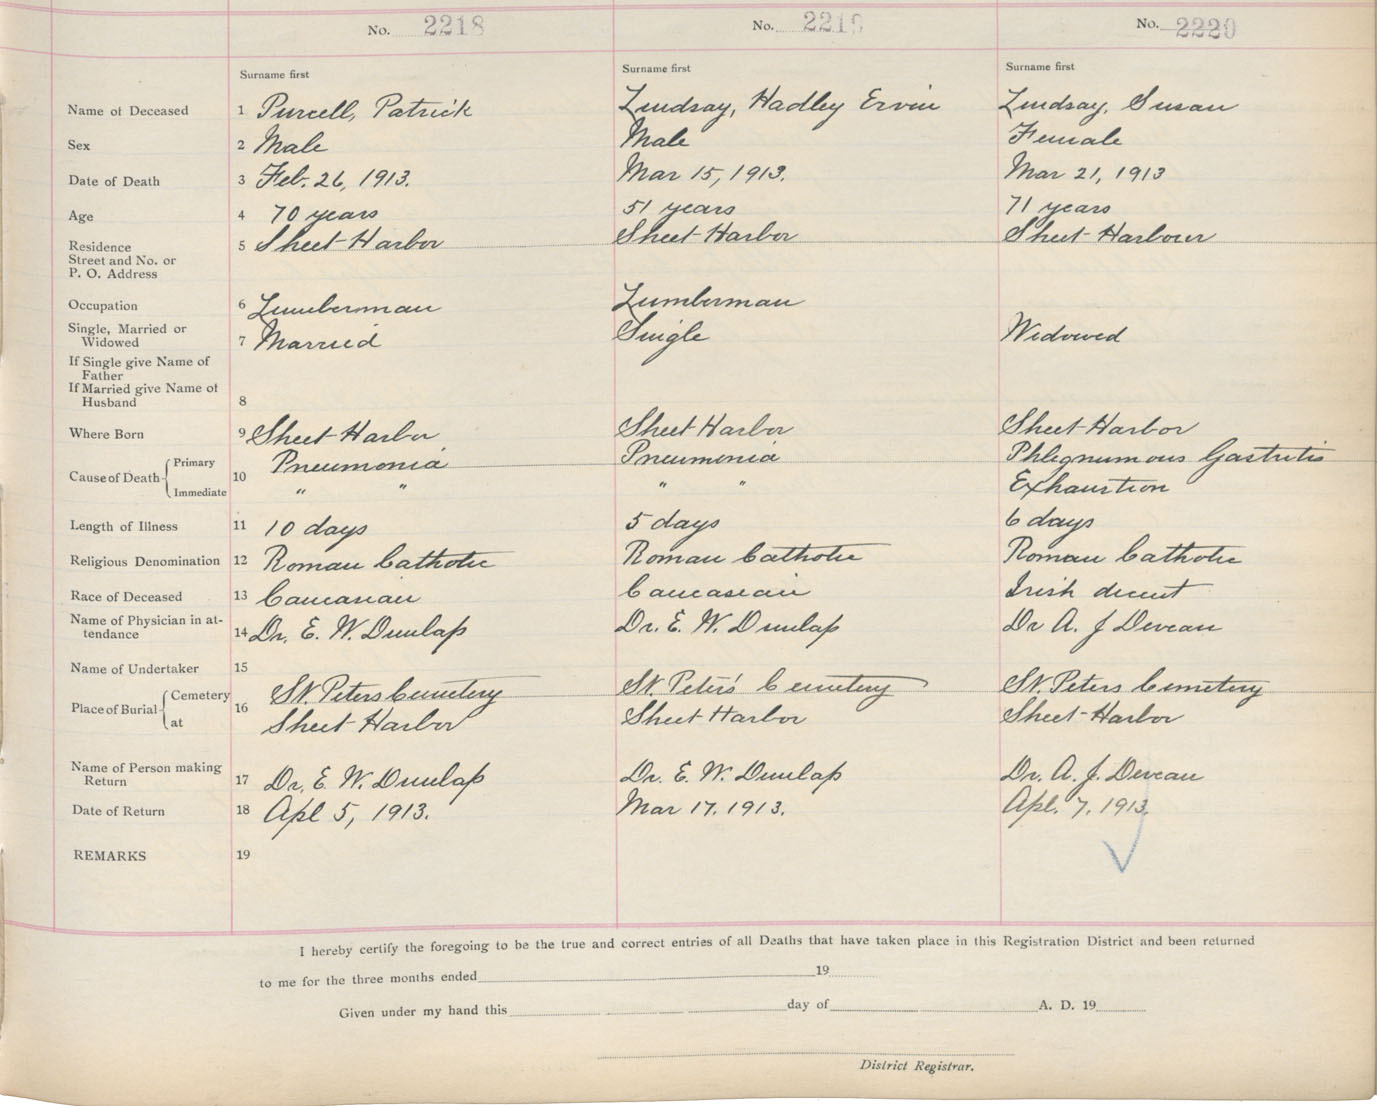 No. 2218 No. 2219 No. 2220
Surname first Surname first Surname first
Name of Deceased 1 Purcell, Patrick Lindsay, Hadley Ervin Lindsay, Susan
Sex 2 Male Male Female
Date of Death 3 Feb. 26, 1913. Mar 15, 1913. Mar 21, 1913
Age 4 70 years 51 years 71 years
Residence 5 Sheet Harbor Sheet Harbor Sheet Harbour
Street and No. or
P. O. Address
Occupation 6 Lumberman Lumberman
Single, Married or
Widowed 7 Married Single Widowed
If Single give Name of
Father
If Married give Name of
Husband 8
Where Born 9 Sheet Harbor Sheet Harbor Sheet Harbor
Cause of Death Primary 10 Pneumonia Pneumonia Phlegnumous Gastritis
Immediate " " " " Exhaustion
Length of Illness 11 10 days 5 days 6 days
Religious Denomination 12 Roman Catholic Roman Catholic Roman Catholic
Race of Deceased 13 Caucasian Caucasian Irish decent
Name of Physician in at-
tendance 14 Dr. E. W. Dunlap Dr. E. W. Dunlap Dr A. J Deveau
Name of Undertaker 15
Place of Burial Cemetery 16 St. Peters Cemetery St. Peters' Cemetery St. Peters Cemetery
at Sheet Harbor Sheet Harbor Sheet Harbor
Name of Person making
Return 17 Dr. E. W. Dunlap Dr. E. W. Dunlap Dr. A. J. Deveau
Date of Return 18 Apl 5, 1913. Mar 17. 1913. Apl. 7, 1913.
REMARKS 19
I hereby certify the foregoing to be the true and correct entries of all Deaths that have taken place in this Registration District and been returned
to me for the three months ended 19
Given under my hand this day of A. D. 19
District Registrar.